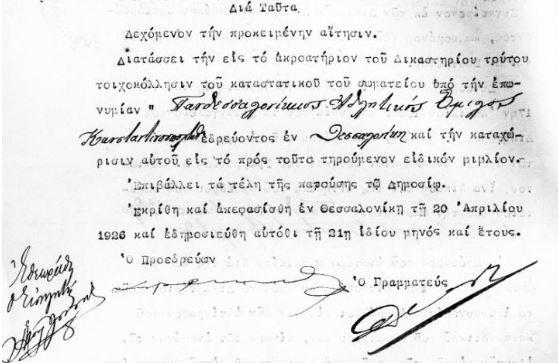 Διά Ταῦτα
Δεχόμενον τήν προκειμένην αἴτησιν.
Διατάσσει τήν εἰς τό ἀκροατήριον τοῦ Δικαστηρίου τούτου
τοιχοκόλλησιν τοῦ καταστατικοῦ τοῦ σωματείου ὑπό τήν ἐπω-
νυμίαν " Πανθεσσαλονίκιος Ἀθλητικός Ὅμιλος
ἑδρεύοντος ἐν Θεσσαλονίκῃ καί τήν καταχώ-
ρισιν αὐτοῦ εἰς τό πρός τοῦτο τηρούμενον εἰδικόν βιβλίον.
Ἐπιβάλλει τά τέλη τῆς παρούσης τῷ Δημοσίῳ.
Ἐκρίθη καί ἀπεφασίσθη ἐν Θεσσαλονίκῃ τῇ 20 Ἀπριλίου
1926 καί ἐδημοσιεύθη αὐτόθι τῇ 21ῃ ἰδίου μηνός καί ἔτους.
Ὁ Προεδρεύων
Ὁ Γραμματεύς
Ἐθεωρήθη